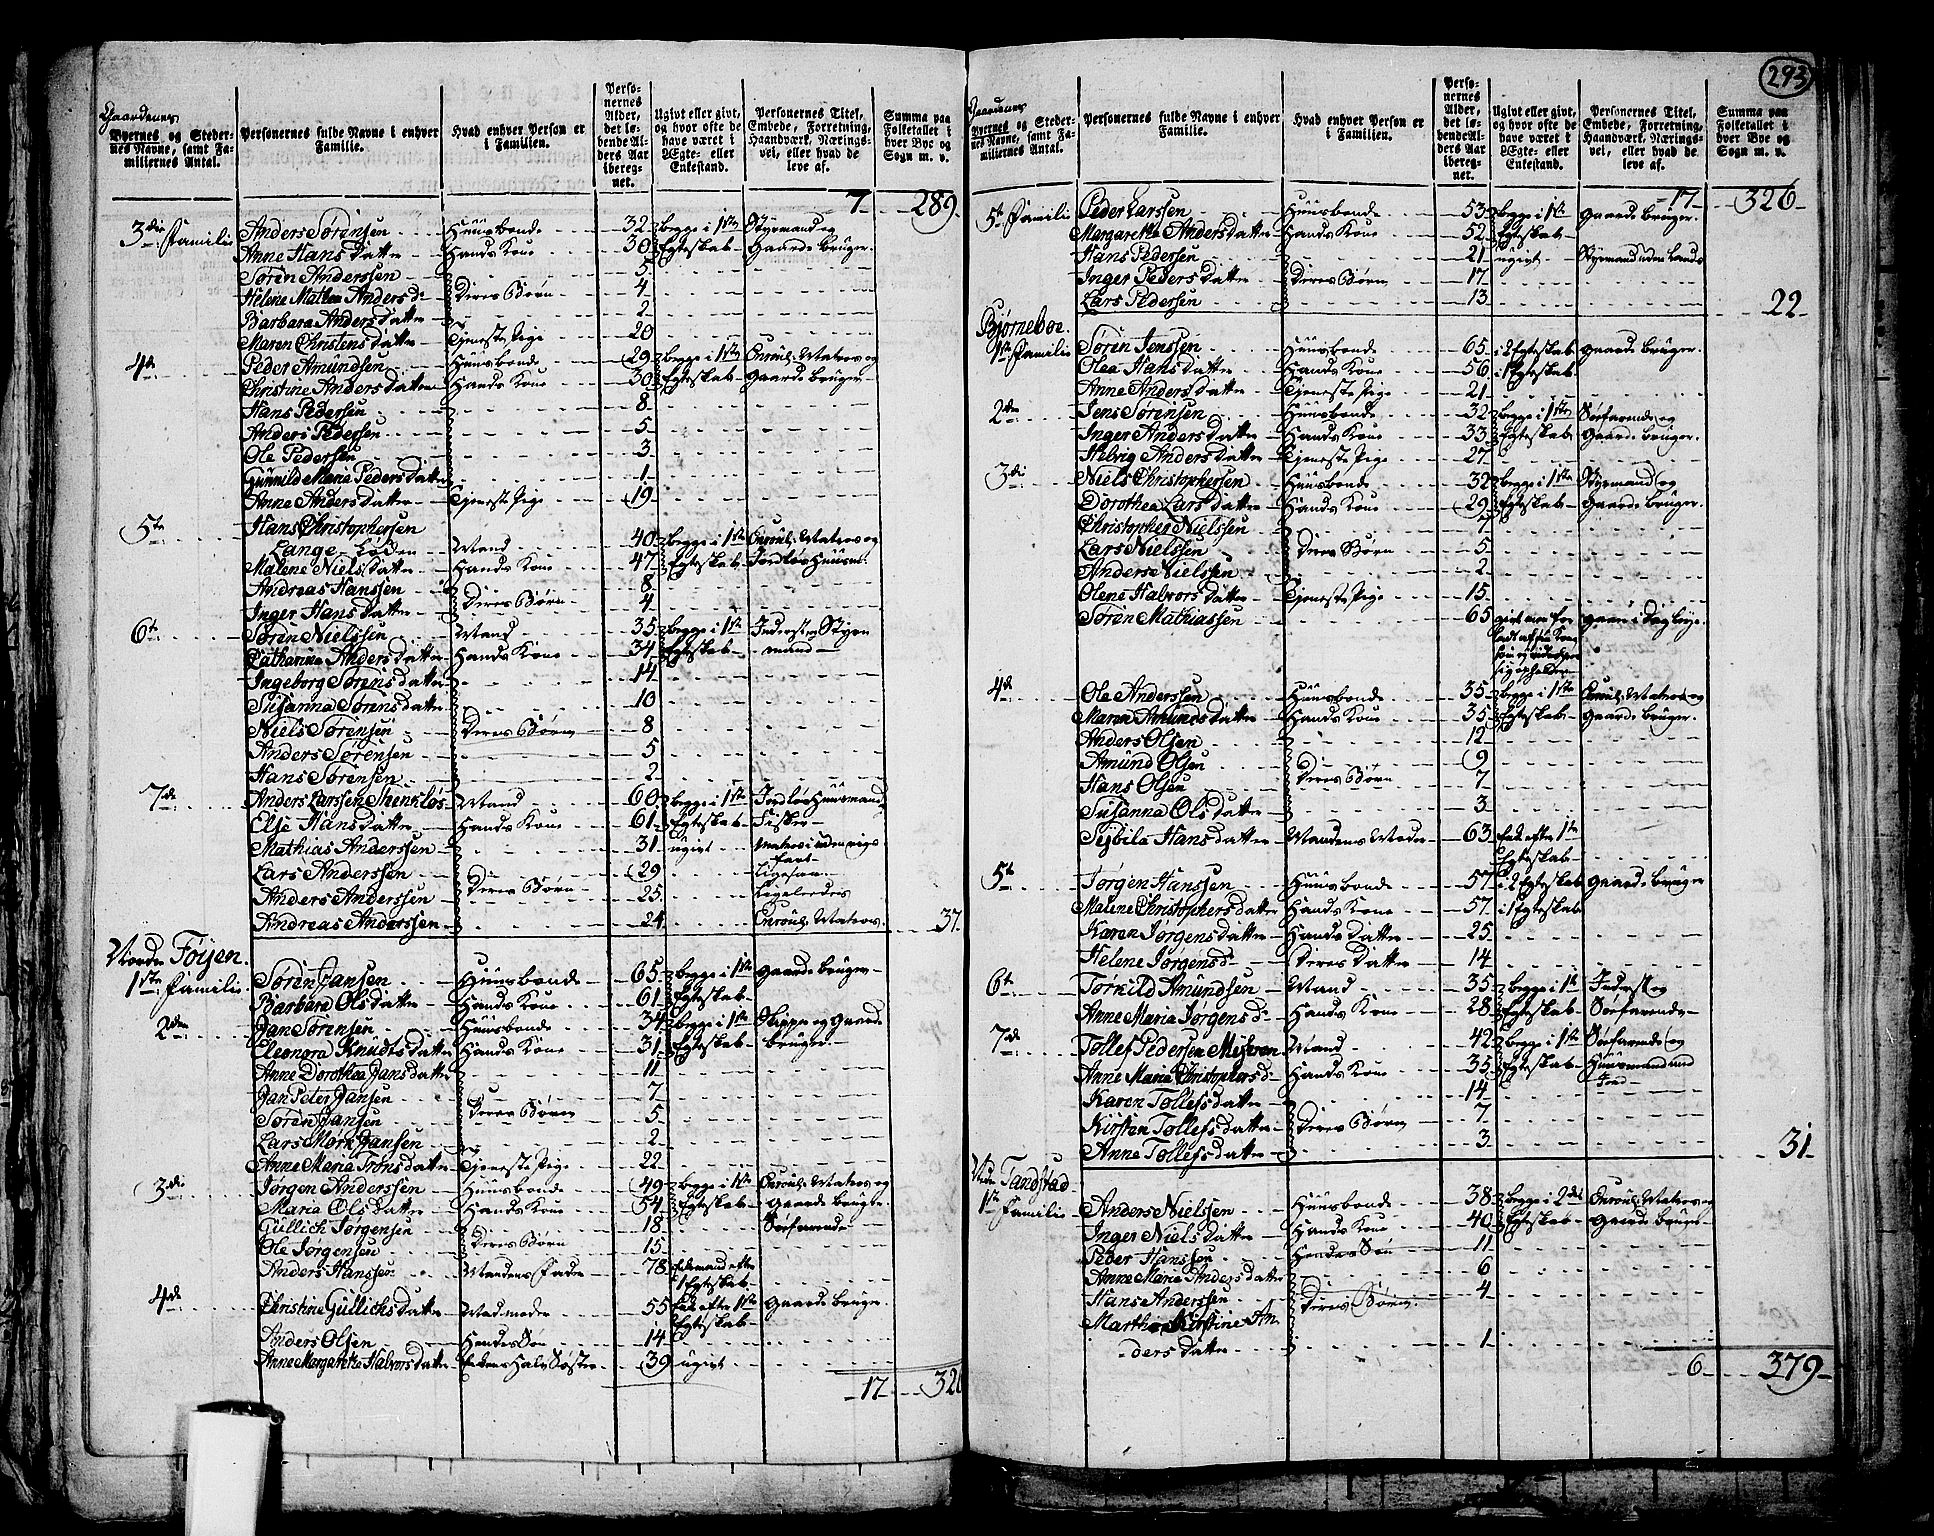 293
Gaardenes
Byernes og Steder-
nes Navne, samt Fa-
miliernes Antal.
Personernes fulde Navne i enhver
Familie.
Hvad enhver Person er
i Familien.
Perso-
nernes
Alder,
det lø-
bende Al-
ders Aar
iberegnet.
Ugivt eller givt,
og hvor ofte de
have været i
Ægte- eller
Enkestand.
Personernes Titel,
Embede, Forretning,
Haandværk, Nærings-
vei, eller hvad de
leve af.
Summa paa
Folketallet i
hver Bye og
Sogn m. v.
7 289
3die Familie Anders Sørensen Huusbonde 32 begge i 1ste Styrmand og
Anne Hans datter Hands Kone 30 Egteskab Gaardebruger
Søren Anderssen 5
Helene Mathea Anders d. Deres Børn 4
Barbara Anders datter 2
Maren Christens datter Tjeneste Pige 20
4de Peder Amundsen Huusbonde 29 begge i 1ste Enroul. Matros og
Christine Anders datter Hands Kone 30 Egteskab Gaardebruger
Hans Pedersen 8
Anders Pedersen 5
Ole Pedersen 3
Gunnild Maria Peders datter 1
Anne Anders datter Tjeneste Pige 19
5te Hans Christophersen
Lange Løden Mand 40 begge i 1ste Enroul. Matros og
Malene Niels datter Hands Kone 47 Egteskab Jordløs Huusm.
Andreas Hanssen 8
Inger Hans datter Deres Børn 4
6te Søren Nielssen Mand 35 begge i 1ste Inderst og Styr
Catharina Anders datter Hands Kone 34 Egteskab mand
Ingeborg Sørens datter 14
Susanna Sørens datter 10
Niels Sørensen Deres Børn 8
Anders Sørensen 5
Hans Sørensen 2
7de Anders Larssen Skenkløs Mand 60 begge i 1ste Jordløs Huusmand
Else Hans datter Hands Kone 61 Egteskab Fisker
Mathias Anderssen 31 ugivt Matros i udenrigs
fart
Lars Anderssen 29 Ligesaa
Anders Anderssen Deres Børn 25 Ligeledes
Andreas Anderssen 24 Enroul. Matros 37
Nordre Føyen
1ste Familie Søren Jansen Huusbonde 65 begge i 1ste Gaardebruger
Barbara Ols datter Hands Kone 61 Egteskab
2den Jan Sørensen Huusbonde 34 begge i 1ste Skipper og Gaarde
Eleonora Knudts datter Hands Kone 31 Egteskab bruger
Anne Dorothea Jans datter 11
Jan Peter Jansen 7
Søren Jansen Deres Børn 5
Lars Mørk Jansen 2
Anne Maria Trøns datter Tjeneste Pige 22
3die Jørgen Anderssen Huusbonde 49 begge i 1ste Enroul. Matros og
Maria Ols datter Hands Kone 54 Egteskab Gaardebruger
Gullich Jørgensen 18 Søefarende
Ole Jørgensen Deres Børn 15
Anders Hanssen Mandens Fader 78 Enkemand efter
1 Egteskab
4de Christine Gullichs datter Madmoder 55 Enke efter 1ste Gaardebruger
Egteskab
Anders Olsen Hendes Søn 14
Anne Margaretha Halvors datter Enkens Halv Søster 39 ugivt
17 326
Gaardenes
Byernes og Steder-
nes Navne, samt Fa-
miliernes Antal.
Personernes fulde Navne i enhver
Familie.
Hvad enhver Person er
i Familien.
Perso-
nernes
Alder,
det lø-
bende Al-
ders Aar
iberegnet.
Ugivt eller givt,
og hvor ofte de
have været i
Ægte- eller
Enkestand.
Personernes Titel,
Embede, Forretning,
Haandværk, Nærings-
vei, eller hvad de
leve af.
Summa paa
Folketallet i
hver Bye og
Sogn m. v.
17 326
5te Familie Peder Larssen Huusbonde 53 begge i 1ste Gaardebruger
Margaretha Anders datter Hands Kone 52 Egteskab
Hans Pedersen 21 ugivt Styrmand uden Lands
Inger Peders datter Deres Børn 17
Lars Pedersen 13 22
Bjørneboe
1ste Familie Søren Jenssen Huusbonde 65 i 2 Egteskab Gaardebruger
Olea Hans datter Hands Kone 56 i 1 Egteskab
Anne Anders datter Tjeneste Pige 21
2den Jens Sørensen Huusbonde 32 begge i 1ste Søefarende og
Inger Anders datter Hands Kone 33 Egteskab Gaardebruger
Helvig Anders datter Tjeneste Pige 27
3die Niels Christophersen Huusbonde 32 begge i 1ste Styrmand og
Dorothea Lars datter Hands Kone 29 Egteskab Gaardebruger
Christopher Nielssen 7
Lars Nielssen Deres Børn 5
Anders Nielssen 2
Olene Halvors datter Tjeneste Pige 15
Søren Mathiassen 65 givt men for
ladt af sin Kone
gaaer i Dag Leye
4de Ole Anderssen Huusbonde 35 begge i 1ste Enroul. Matros og
Maren Amunds datter Hands Kone 35 Egteskab Gaardebruger
Anders Olsen 12
Amund Olsen 9
Hans Olsen Deres Børn 7
Susanna Ols datter 3
Sejbila Hans datter Mandens Moder 63 Enke efter 1ste
Egteskab
5te Jørgen Hanssen Huusbonde 57 i 2 Egteskab Gaardebruger
Malene Christophers datter Hands Kone 57 i 1 Egteskab
Karen Jørgens datter Hands Datter 25
Helene Jørgens d. Deres Datter 14
6te Tørkild Amundsen Mand 35 begge i 1ste Inderst og
Anne Maria Jørgens d. Hands Kone 28 Egteskab Søefarende
7de Tollef Pedersen Mand 42 begge i 1ste Søefarende og
Anne Maria Christophers d. Hands Kone 35 Egteskab Huusmand med
Jord
Karen Tollefs datter 14
Kirsten Tollefs datter Deres Børn 7
Anne Tollefs datter 3 31
Nedre Tandstad
1ste Familie Anders Nielssen Huusbonde 38 begge i 2det Enroul. Matros og
Inger Niels datter Hands Kone 40 Egteskab Gaardebruger
Peder Hanssen Hendes Søn 11
Anne Maria Anders datter 6
Hans Anderssen Deres Børn 4
Martha Kirstine An
ders datter 1
6 379